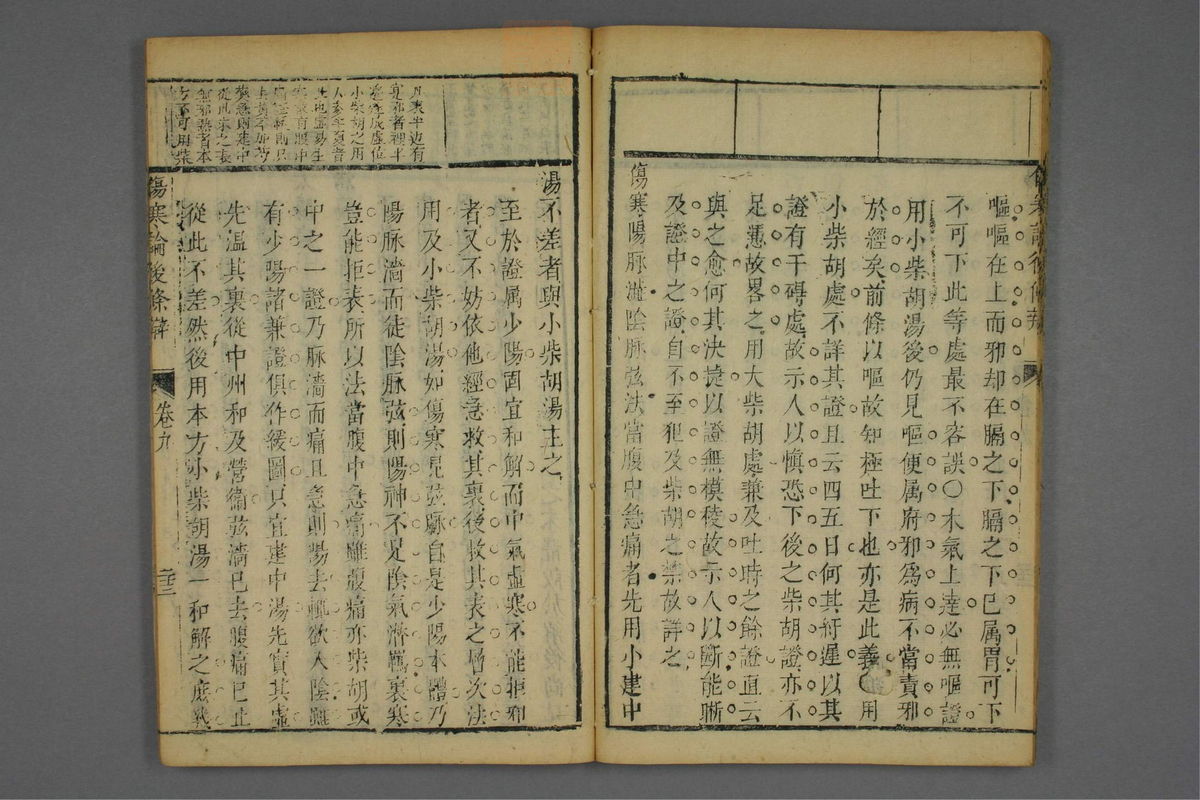 嘔嘔在上而邪却在膈之下膈之下已属胃可下
不可下此等處最不容誤〇木氣上逹必無嘔證
用小柴胡湯後仍見嘔便属府邪爲病不當責邪
於經矣前條以嘔故知極吐下也亦是此義〇用
小柴胡處不詳其證且云四五日何其紆遲以其
證有干碍處故示人以慎恐下後之柴胡證亦不
足慿故畧之用大柴胡處兼及吐時之餘證直云
與之愈何其決㨗以證無模稜故示人以斷能晰
及證中之證自不至犯及柴胡之禁故詳之
傷寒陽脉濇陰脉弦法當腹中急痛者先用小建中
湯不差者與小柴胡湯主之
至於證属少陽固宜和解而中氣虚寒不能拒邪
者又不妨依他經急救其裏後救其表之增次法
用及小柴胡湯如傷寒見弦脉自是少陽本體乃
陽脉濇而徒陰脉弦則陽神不足陰氣濟羈裏寒
豈能拒表所以法當腹中急痛雖腹痛亦柴胡或
中之一證乃脉濇而痛且急則陽去輒欲入陰雖
有少陽諸兼證俱作緩圖只宜建中湯先實其虚
先温其裏從中州和及營衞弦濇已去腹痛已止
從此不差然後用本方小柴胡湯一和解之庶幾
凡表半邊有
寒邪者裡半
邊每成虚位
小柴胡之用
人參半夏者
傷寒論後條辯
卷九
二十三